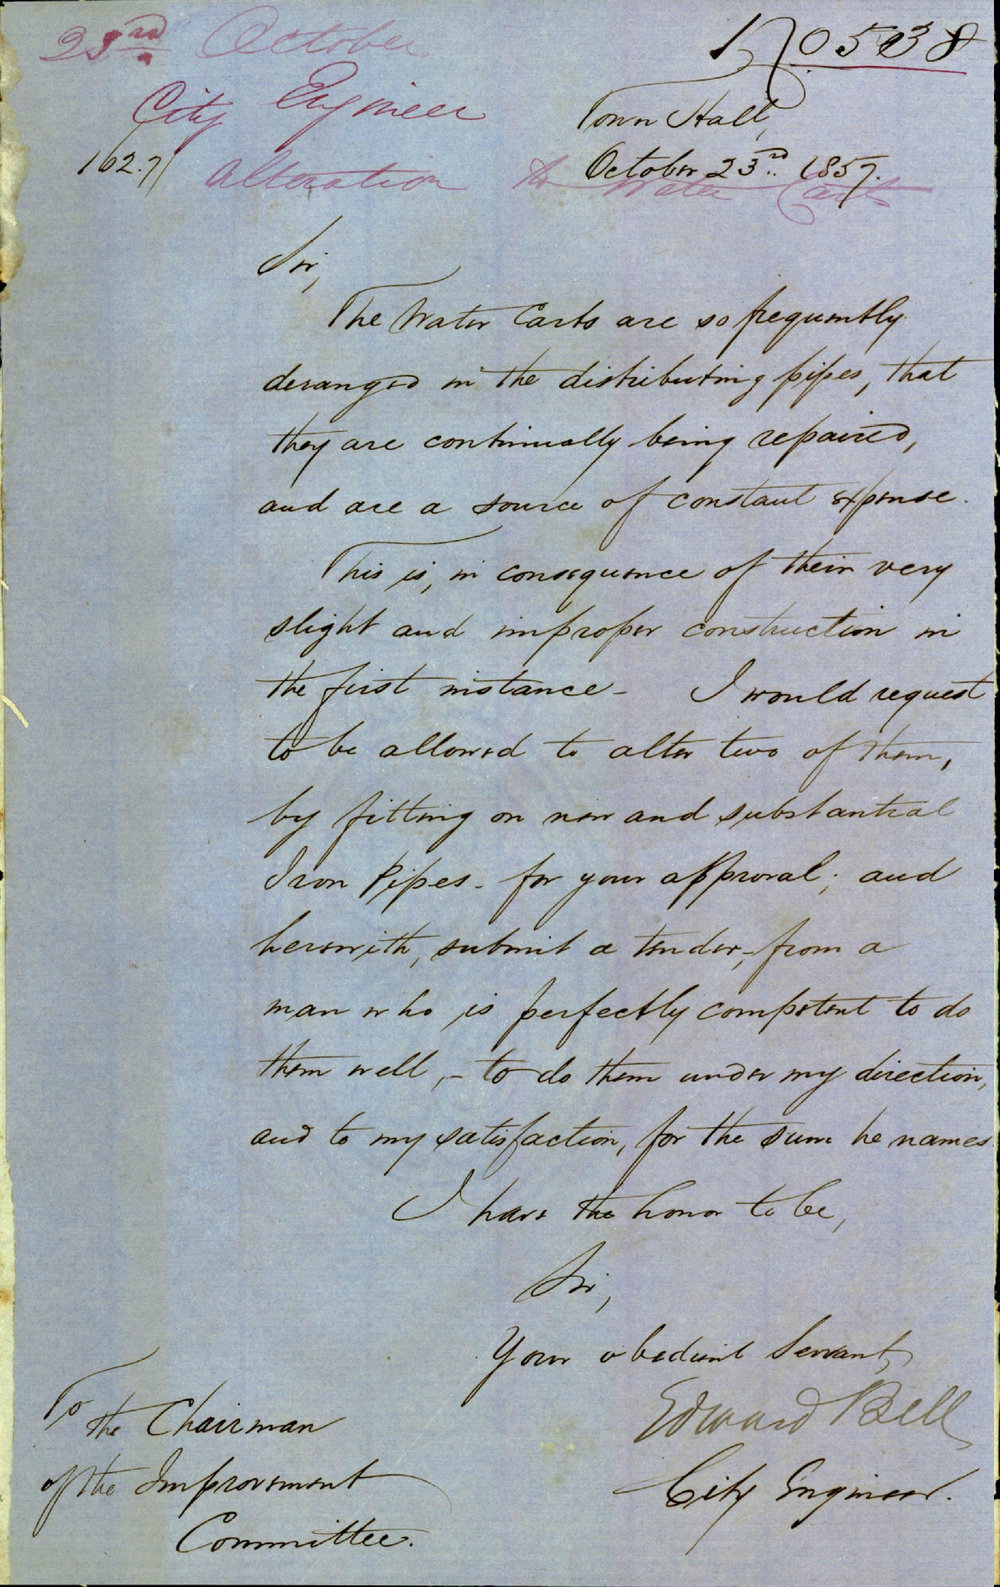 23rd October
No 538
City Engineer
Town Hall,
162.7/
October 23rd. 1857.
Alteration to Water Carts
Sir,
The Water Carts are so frequently
deranged in the distributing pipes, that
they are continually being repaired,
and are a source of constant expense.
This is, in consequence of their very
slight and improper construction in
the first instance - I would request
to be allowed to alter two of them,
by fitting on new and substantial
Iron Pipes - for your approval; and
herewith, submit a tender, - from a
man who is perfectly competent to do
them well, - to do them under my direction,
and to my satisfaction, for the sum he names
I have the honor to be,
Sir,
Your obedient Servant,
Edward Bell
City Engineer.
To
the Chairman
of the Improvement
Committee.